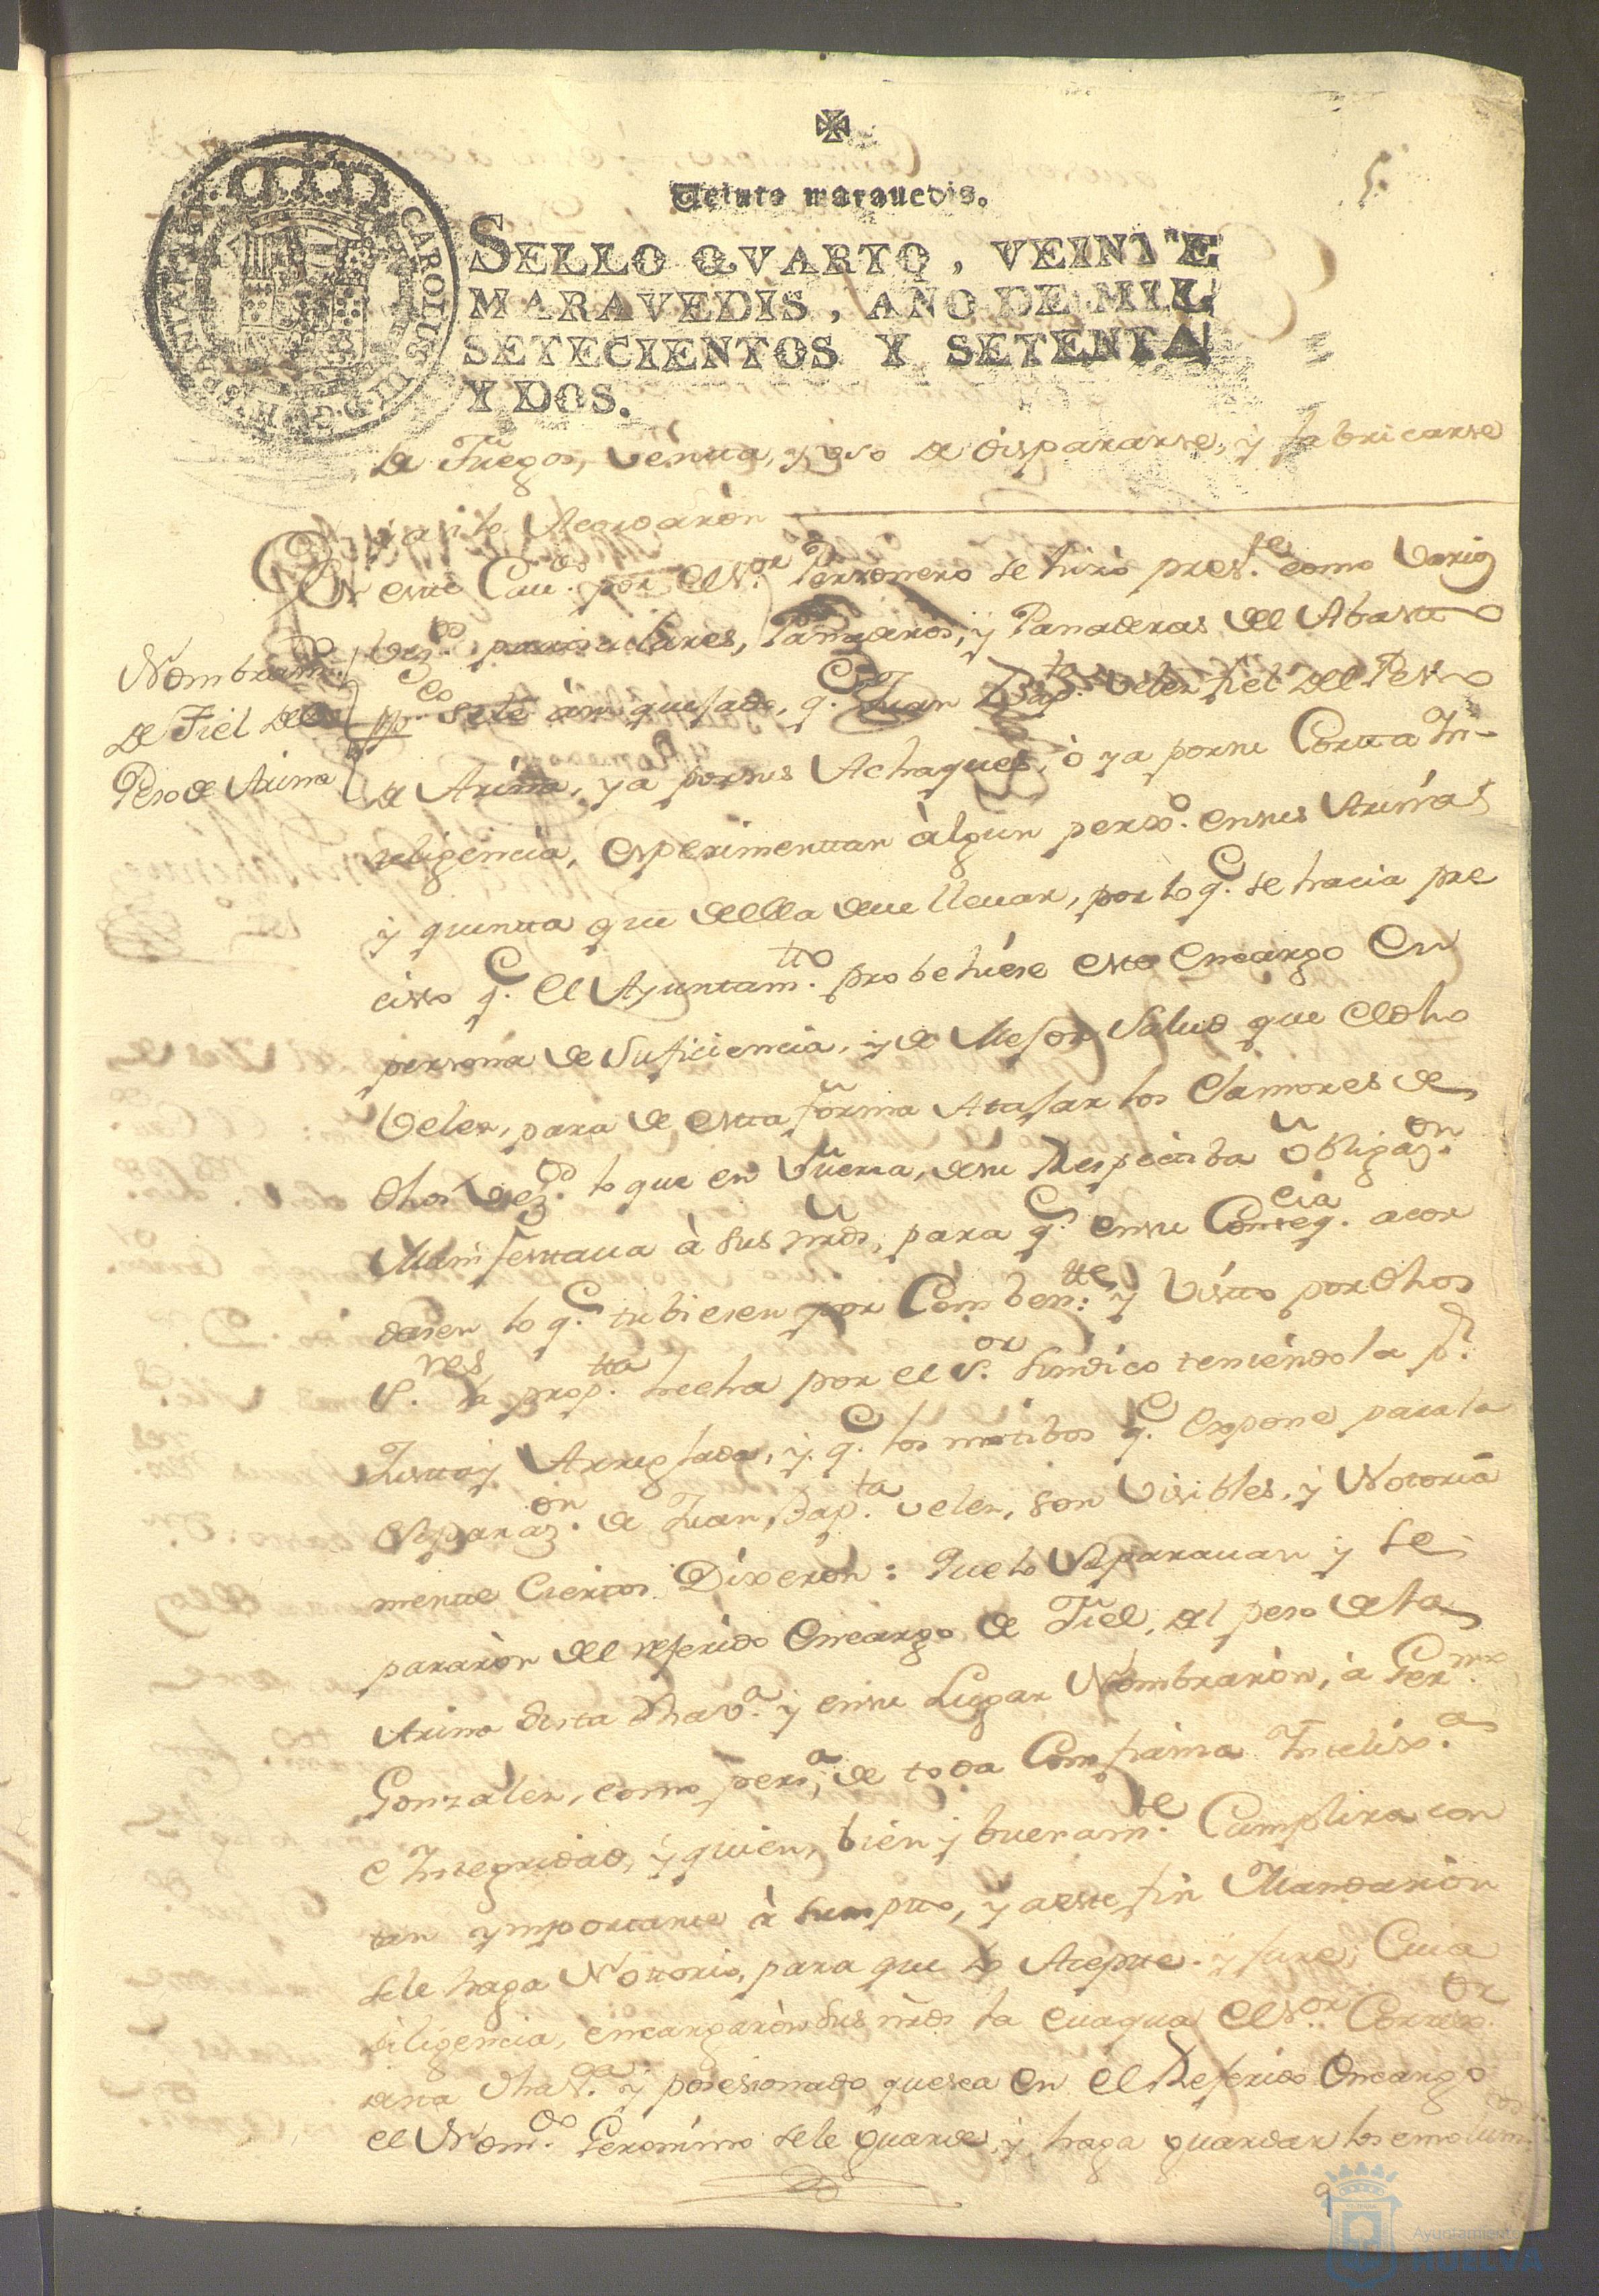 Veinte maravedis.
SELLO QVARTO, VEINTE
MARAVEDIS, AÑO DE MIL
SETECIENTOS Y SETENTA
Y DOS.
CAROLUS III D G
de Fuegos, venta, y uso de dispararse, y fabricarse
asi lo Acordaròn
En este Cau.do por el S.or Personero se hizò pres.te como varios
Nombram.to
de Fiel del
Peso de Arina
vez.os particulares, Panaderos, y Panaderas del Abasto
pp.co se le àn quejado, q.e Juan Bap.ta Velez fiel del Peso
de Arina, ya por sus Achaques, ò ya por su Corta In-
teligencia, esperimentan àlgun perxo. en sus Arinas
y quenta que della deve llevar, por lo q.e se hacia pre
ciso q.e el Ayuntam.tto probehiese este encargo en
persona de Suficiencia, y de Mejor Salud que el dho
Velez, para de esta forma Atajar los Clamores de
dhos vez.os lo que en fuerza, de su Respectiba obligaz.on
Manifestava à sus mrds, para q.e en su Conseq.cia acor
dasen lo q.e tubiesen por Comben.tte y Visto por dhos
S.res la prop.tta hecha por el S.or Sindico teniendola p.r
Justa y Arreglada, y q.e los motibos q.e Expone para la
separaz.on de Juan Bap.ta Velez, son Visibles, y Notoria
mente Ciertos Dixeron: Que lo Separavan y se
pararòn del referido Encargo de Fiel, del peso de la
Arina desta dha v.a y en su Lugar Nombraròn, à Ger.mo
Gonzalez, como pers.a de toda Confianza Intelix.a
e Integridad, y quien, bien y buenam.te Cumplira con
tan ymportante àsumpto, y a este fin Mandaròn
se le haga Notorio, para que lo Acepte y jure, Cuia
diligencia, encargaròn sus mrds la evaqua el S.or Correx.or
desta dha V.a y posesionado que sea en el Referido Encargo
el Nom.do Geronimo se le guarde, y haga guardar los emolum.tos
Ayuntamiento
HUELVA